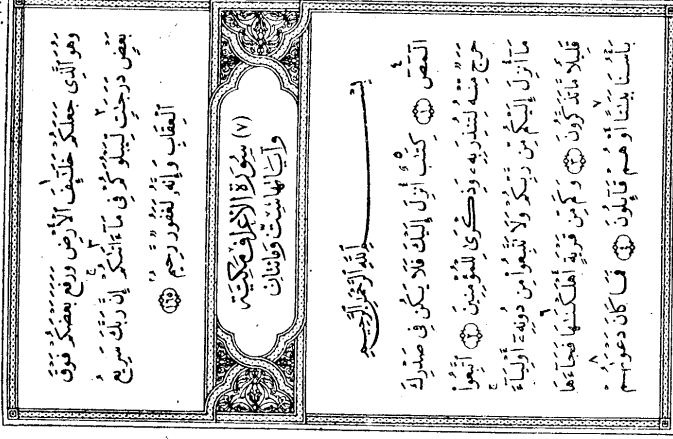 وَهُوَ ٱلَّذِى جَعَلَكُمْ خَلَٰٓئِفَ ٱلْأَرْضِ وَرَفَعَ بَعْضَكُمْ فَوْقَ
بَعْضٍ دَرَجَٰتٍ لِّيَبْلُوَكُمْ فِى مَآ ءَاتَىٰكُمْ إِنَّ رَبَّكَ سَرِيعُ
ٱلْعِقَابِ وَإِنَّهُۥ لَغَفُورٌ رَّحِيمٌ ١٦٥
(٧) سُورَةُ الأَعْرَافِ مَكِيَّة
وَآيَاتُهَا سِتٌّ وَمِائَتَانِ
بِسْمِ ٱللَّهِ ٱلرَّحْمَٰنِ ٱلرَّحِيمِ
الٓمٓصٓ ١ كِتَٰبٌ أُنزِلَ إِلَيْكَ فَلَا يَكُن فِى صَدْرِكَ
حَرَجٌ مِّنْهُ لِتُنذِرَ بِهِۦ وَذِكْرَىٰ لِلْمُؤْمِنِينَ ٢ ٱتَّبِعُوا۟
مَآ أُنزِلَ إِلَيْكُم مِّن رَّبِّكُمْ وَلَا تَتَّبِعُوا۟ مِن دُونِهِۦٓ أَوْلِيَآءَ
قَلِيلًا مَّا تَذَكَّرُونَ ٣ وَكَم مِّن قَرْيَةٍ أَهْلَكْنَٰهَا فَجَآءَهَا
بَأْسُنَا بَيَٰتًا أَوْ هُمْ قَآئِلُونَ ٤ فَمَا كَانَ دَعْوَىٰهُمْ